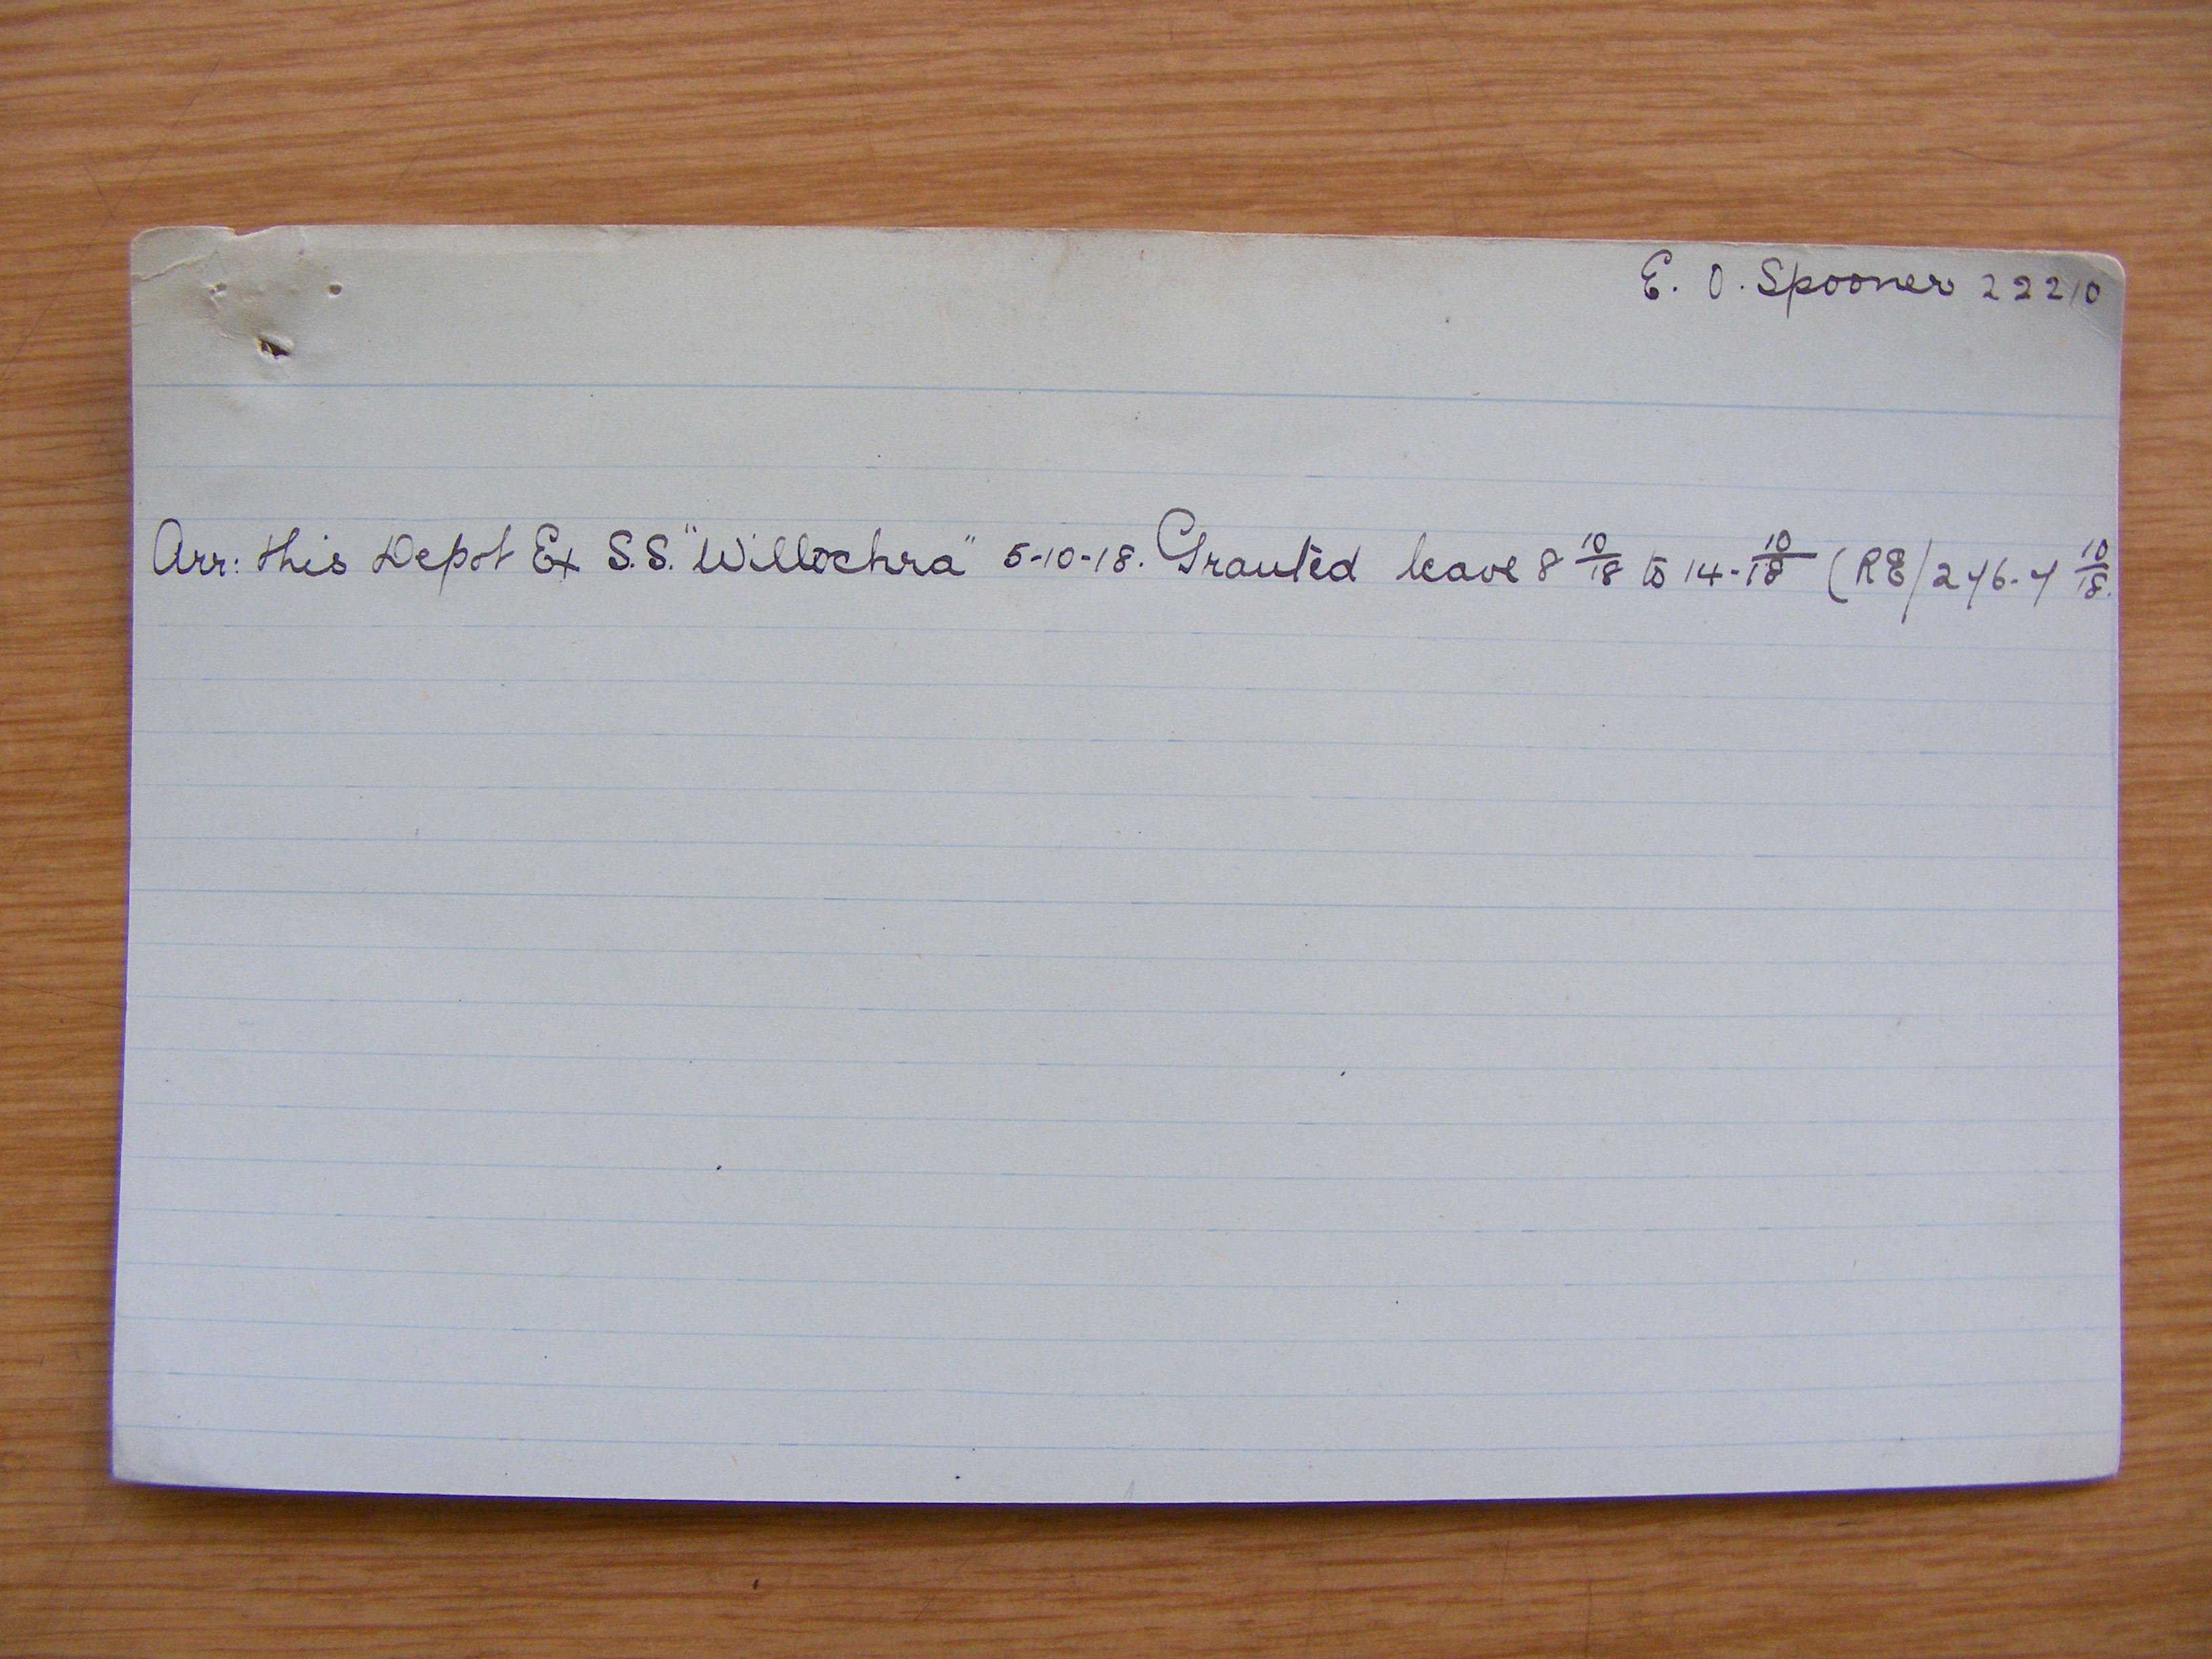 E. O. Spooner 22210
Arr: this Depot Ex S.S. "Willochra" 5-10-18. Granted leave 8 10/18 to 14-10/18 (RE/276-7 10/18.